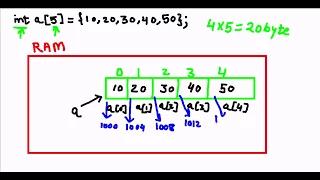 int a[5] = {10,20,30,40,50}; 4x5=20byte
RAM
0 1 2 3 4
10 20 30 40 50
a a[0] a[1] a[2] a[3] a[4]
1000 1004 1008 1012 1